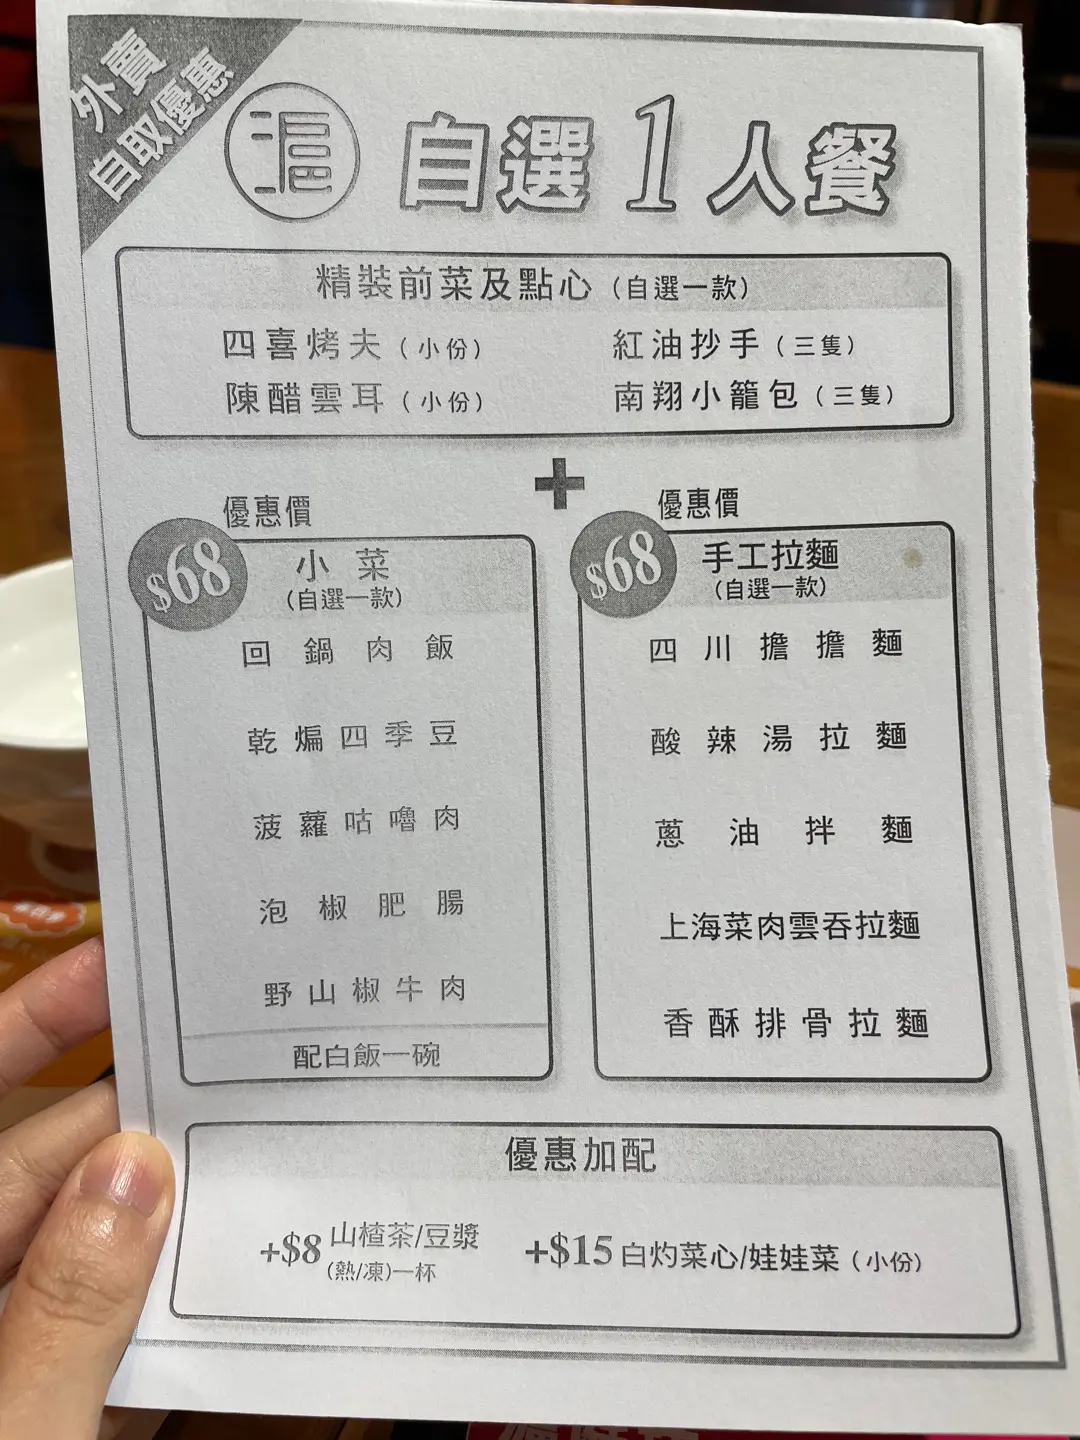 外賣
自取優惠
滬
自選1人餐
精裝前菜及點心（自選一款）
四喜烤夫（小份）
紅油抄手（三隻）
陳醋雲耳（小份）
南翔小籠包（三隻）
+
優惠價
$68
小菜
（自選一款）
回鍋肉飯
乾煸四季豆
菠蘿咕嚕肉
泡椒肥腸
野山椒牛肉
配白飯一碗
優惠價
$68
手工拉麵
（自選一款）
四川擔擔麵
酸辣湯拉麵
蔥油拌麵
上海菜肉雲吞拉麵
香酥排骨拉麵
優惠加配
+$8 山楂茶/豆漿
(熱/凍)一杯
+$15 白灼菜心/娃娃菜（小份）